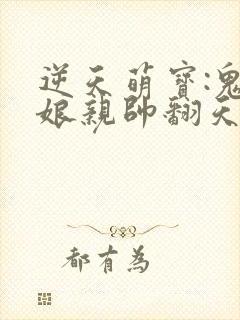 逆天萌寶:鬼
娘親帥翻天
都有為